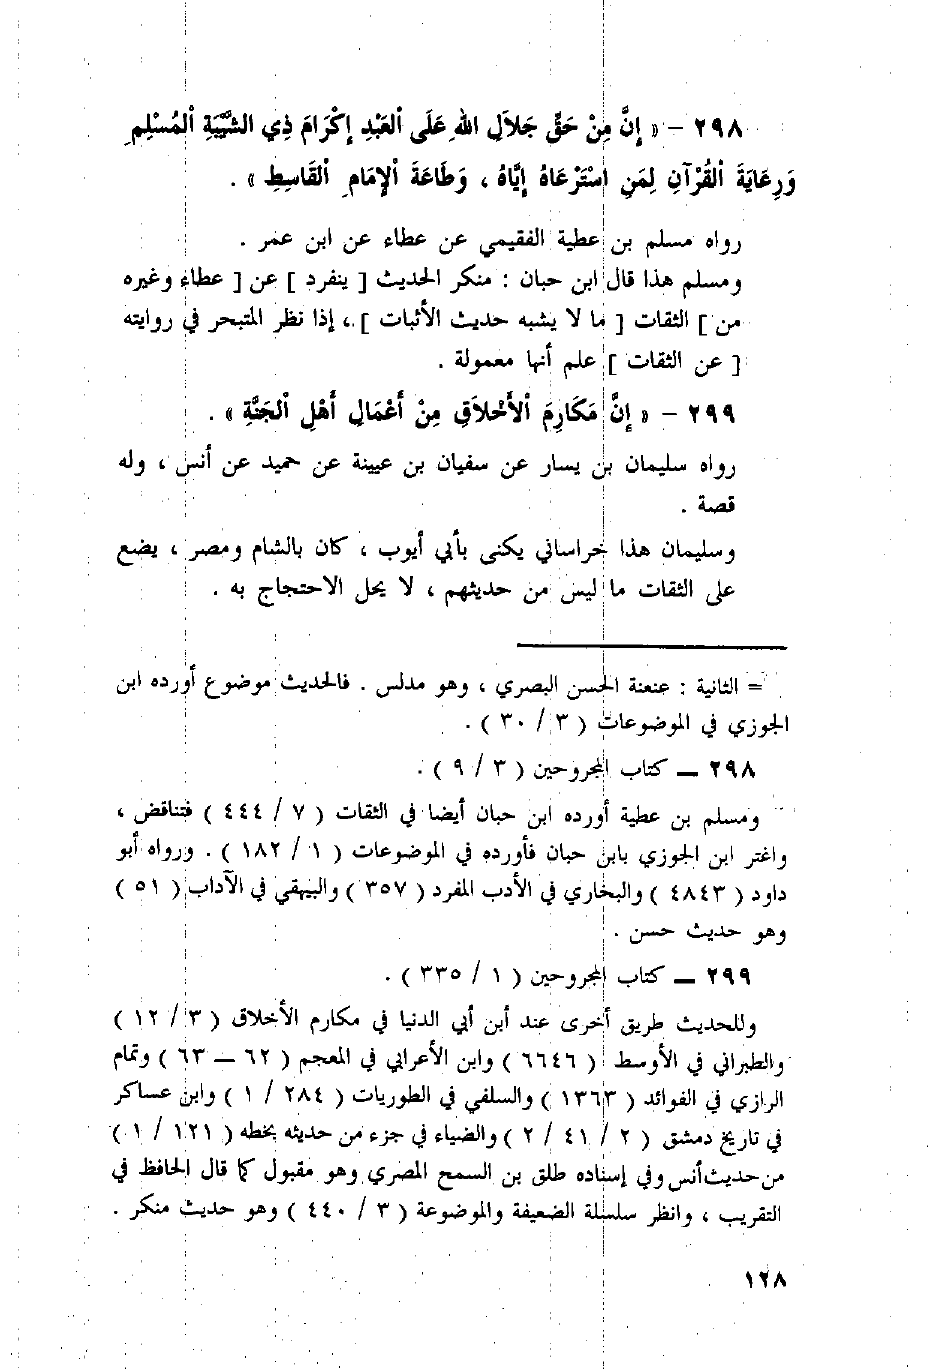 ٢٩٨ - « إِنَّ مِنْ حَقِّ جَلاَلِ اللهِ عَلَى اَلعَبْدِ إِكْرَامَ ذِي الشَّيْبَةِ اَلمُسْلِمِ
وَرِعَايَةَ اَلقُرْآنِ لِمَنِ اسْتَرْعَاهُ إِيَّاهُ ، وَطَاعَةَ اَلإِمَامِ اَلقَاسِطِ » .
رواه مسلم بن عطية الفقيمي عن عطاء عن ابن عمر .
ومسلم هذا قال ابن حبان : منكر الحديث [ ينفرد ] عن [ عطاء وغيره
من ] الثقات [ ما لا يشبه حديث الأثبات ] ، إذا نظر المتبحر في روايته
[ عن الثقات ] علم أنها معمولة .
٢٩٩ - « إِنَّ مَكَارِمَ اَلأَخْلاَقِ مِنْ أَعْمَالِ أَهْلِ اَلجَنَّةِ » .
رواه سليمان بن يسار عن سفيان بن عيينة عن حميد عن أنس ، وله
قصة .
وسليمان هذا خراساني يكنى بأبي أيوب ، كان بالشام ومصر ، يضع
على الثقات ما ليس من حديثهم ، لا يحل الاحتجاج به .
= الثانية : عنعنة الحسن البصري ، وهو مدلس . فالحديث موضوع أورده ابن
الجوزي في الموضوعات ( ٣ / ٣٠ ) .
٢٩٨ — كتاب المجروحين ( ٣ / ٩ ) .
ومسلم بن عطية أورده ابن حبان أيضا في الثقات ( ٧ / ٤٤٤ ) فتناقض ،
واغتر ابن الجوزي بابن حبان فأورده في الموضوعات ( ١ / ١٨٢ ) . ورواه أبو
داود ( ٤٨٤٣ ) والبخاري في الأدب المفرد ( ٣٥٧ ) والبيهقي في الآداب ( ٥١ )
وهو حديث حسن .
٢٩٩ — كتاب المجروحين ( ١ / ٣٣٥ ) .
وللحديث طريق أخرى عند ابن أبي الدنيا في مكارم الأخلاق ( ٣ / ١٢ )
والطبراني في الأوسط ( ٦٦٤٦ ) وابن الأعرابي في المعجم ( ٦٢ — ٦٣ ) وتمام
الرازي في الفوائد ( ١٣٦٣ ) والسلفي في الطوريات ( ٢٨٤ / ١ ) وابن عساكر
في تاريخ دمشق ( ٢ / ٤١ / ٢ ) والضياء في جزء من حديثه بخطه ( ١٢١ / ١ )
من حديث أنس وفي إسناده طلق بن السمح المصري وهو مقبول كما قال الحافظ في
التقريب ، وانظر سلسلة الضعيفة والموضوعة ( ٣ / ٤٤٠ ) وهو حديث منكر .
١٢٨